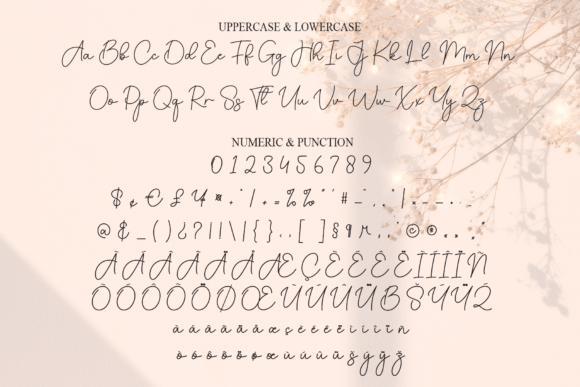 UPPERCASE & LOWERCASE
Aa Bb Cc Dd Ee Ff Gg Hh Ii Jj Kk Ll Mm Nn
Oo Pp Qq Rr Ss Tt Uu Vv Ww Xx Yy Zz
NUMERIC & PUNCTION
0 1 2 3 4 5 6 7 8 9
$ ¢ € £ ¥ ¤ + / + = % ‰ # _
@ & _ ( ) ¿ ? | | \ | { } [ ] § ¶ © ®
Æ Ç È É Ê Ë Ì Í Î Ï Ñ
Ò Ó Ô Õ Ö Ø Œ Ù Ú Û Ü ß Š Ý Ÿ Ž
æ ç è é ê ë ì í î ï ñ
ø œ ù ú û ü š ý ÿ ž